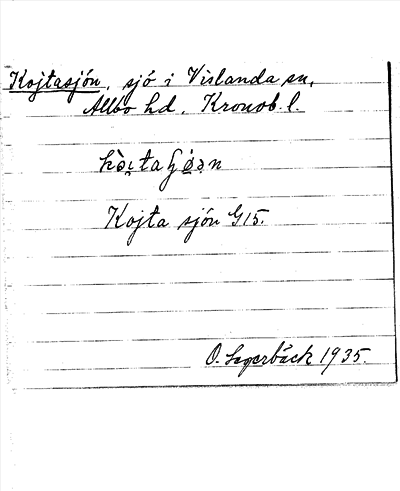 Kojtasjön, sjö i Vislanda sn,
Allbo hd. Kronob. l.
Kojta sjön G15.
O. Lagerbäck 1935.